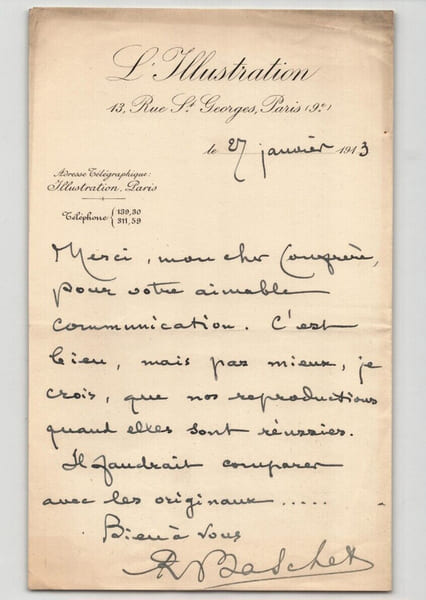 L'Illustration
13, Rue St Georges, Paris (9e)
le 27 janvier 1913
Adresse Télégraphique:
Illustration, Paris
Téléphone { 139,30
311,59
Merci, mon cher Confrère,
pour votre aimable
communication. C'est
bien, mais pas mieux, je
crois, que nos reproductions
quand elles sont réussies.
Il faudrait comparer
avec les originaux.....
Bien à vous
R Baschet